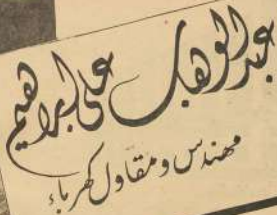 عبد الوهاب على ابراهيم
مهندس ومقاول كهرباء